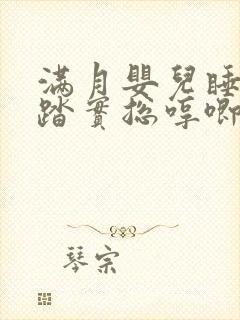 满月嬰兒睡
踏實總哼唧
琴宗